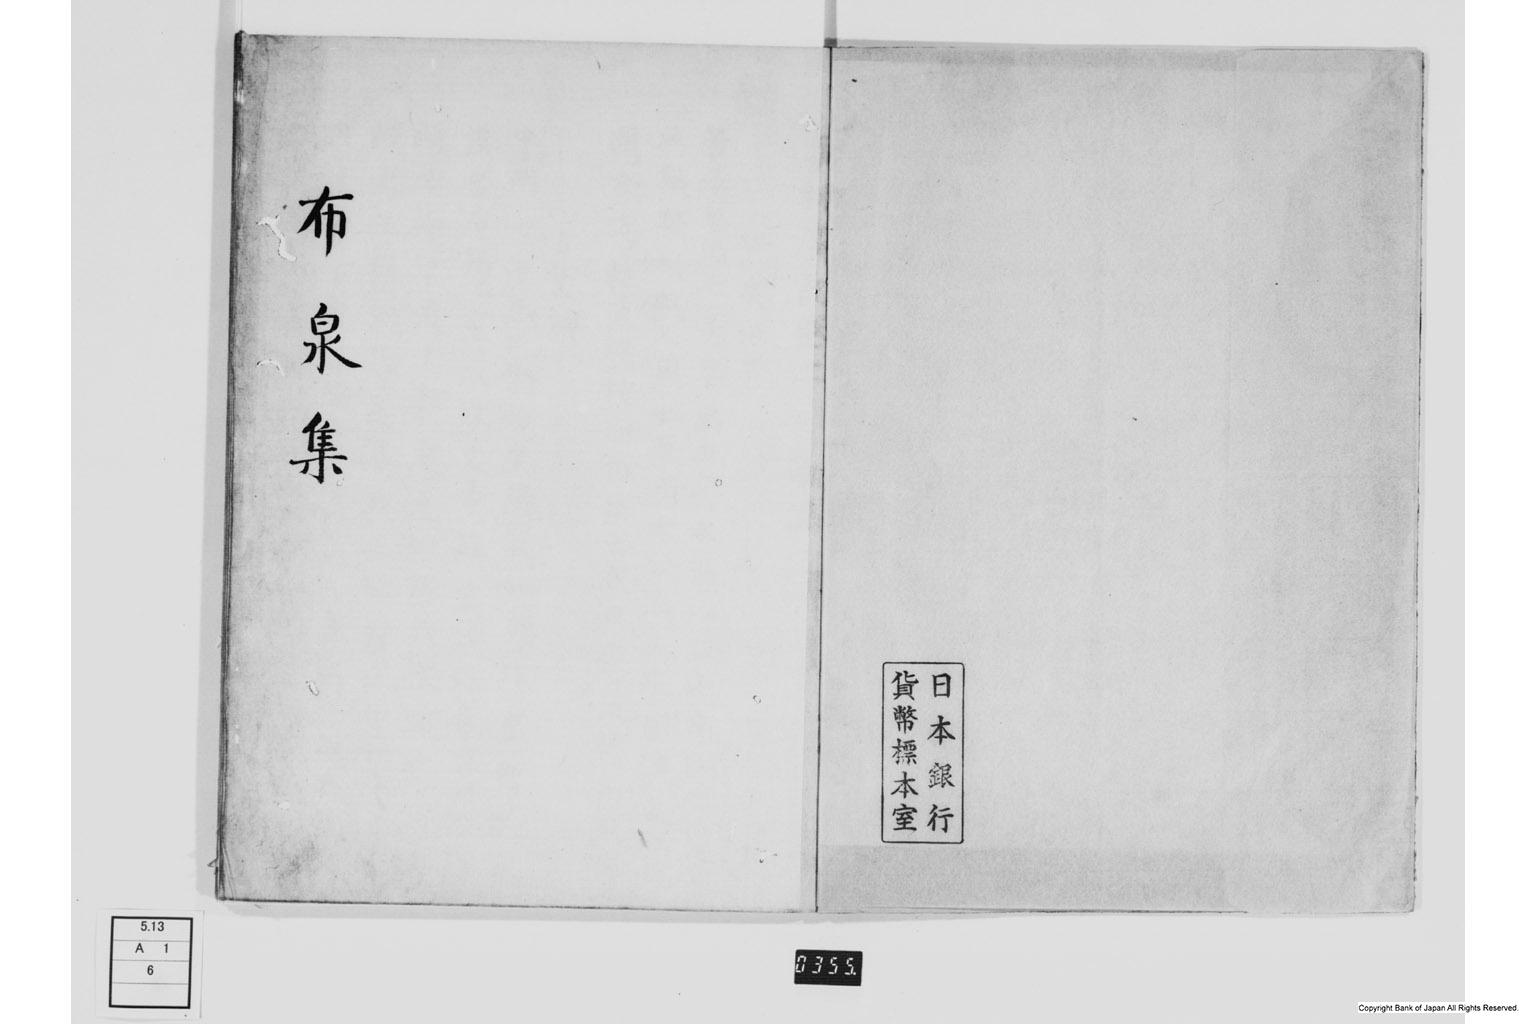 日本銀行
貨幣標本室
布泉集
5.13
A 1
6
0355.
Copyright Bank of Japan All Rights Reserved.